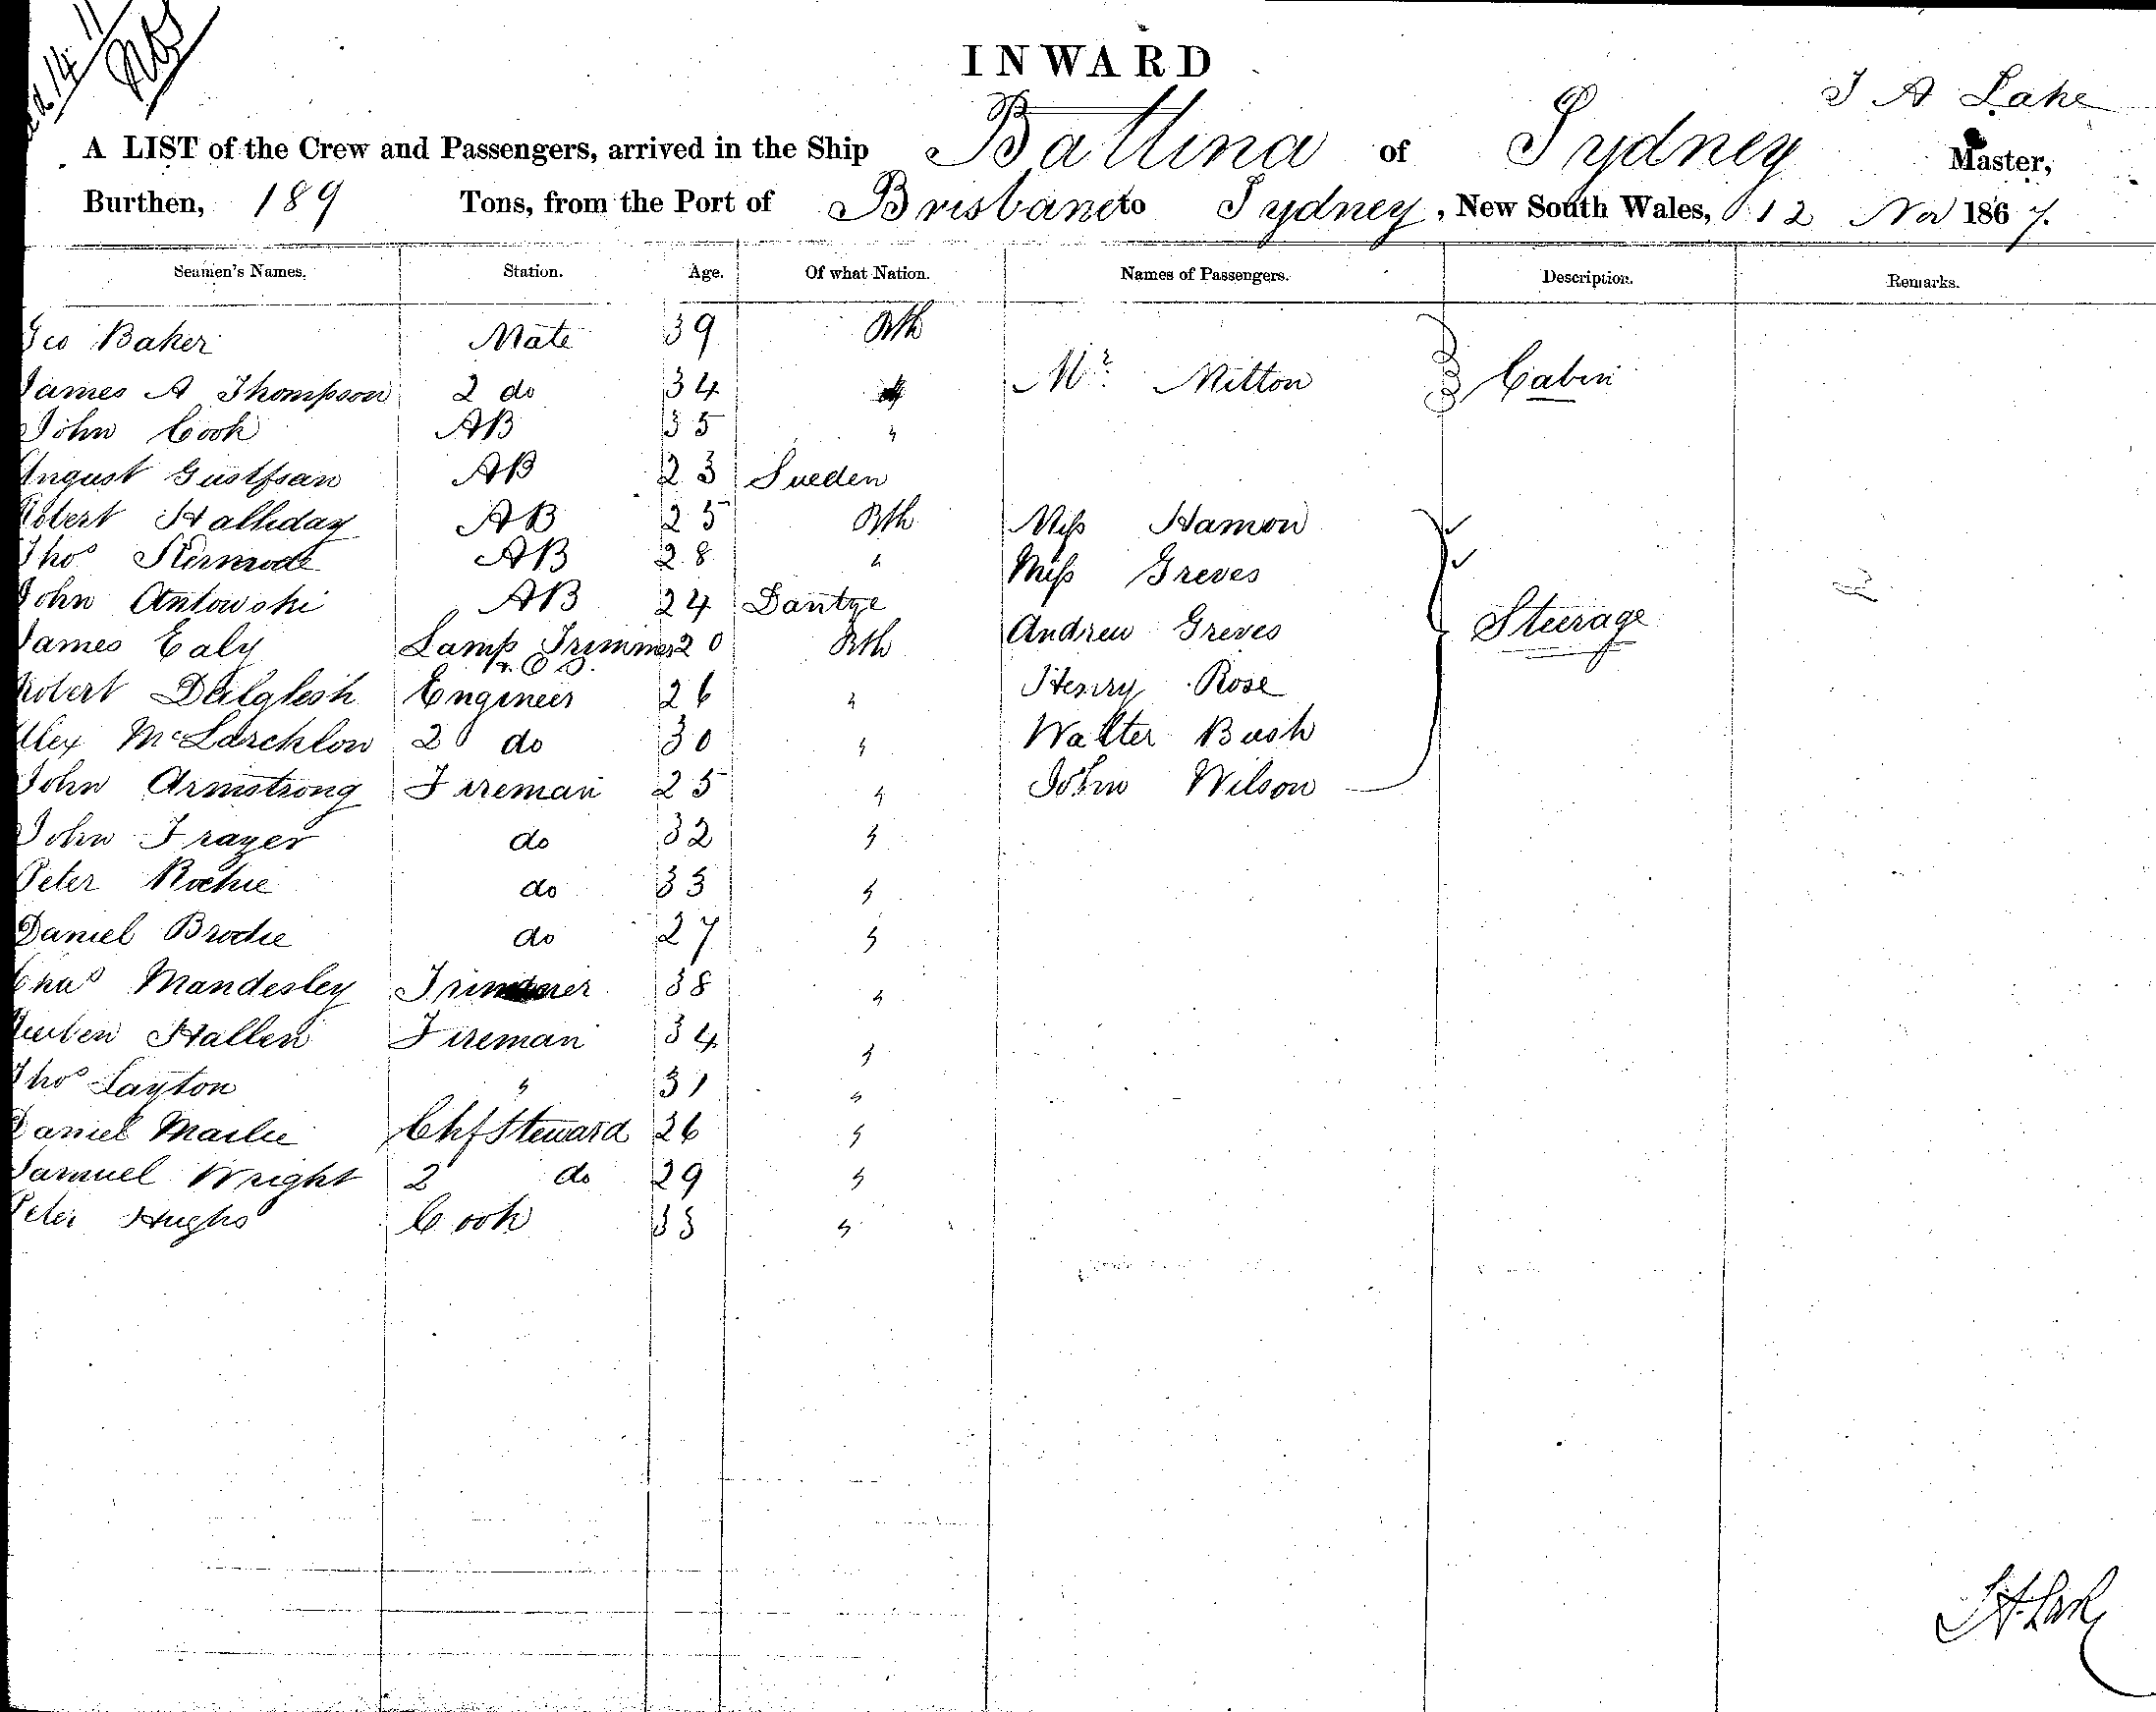 INWARD
J A Lake
A LIST of the Crew and Passengers, arrived in the Ship Ballina of Sydney Master,
Burthen, 189 Tons, from the Port of Brisbane to Sydney, New South Wales, 12 Nov 1867.
Seamen's Names. Station. Age. Of what Nation. Names of Passengers. Description. Remarks.
Geo Baker Mate 39 Bth
James A Thompson 2 do 34 Mr. Mitton Cabin
John Cook AB 35 "
August Gustfsan AB 23 Sueden
Robert Halliday AB 25 Bth Miss Hamon
Thos AB 28 " Miss Greves
John Antowski AB 24 Dantge
James Ealy Lamp Trimmer 20 Bth Andrew Greves Steerage
& O S.
Robert Dalglesh Engineer 26 " Henry Rose
Alex McLarchlon 2 do 30 " Walter Bush
John Armstrong Fireman 25 " John Wilson
John Frayer do 32 "
Peter Rochie do 33 "
Daniel Brodie do 27 "
Chas Mandesley Trimmer 38 "
Reuben Hallen Fireman 34 "
Thos Layton " 31 "
Daniel Mailie Chf Steward 26 "
Samuel Wright 2 do 29 "
Peter Hughs Cook 33 "